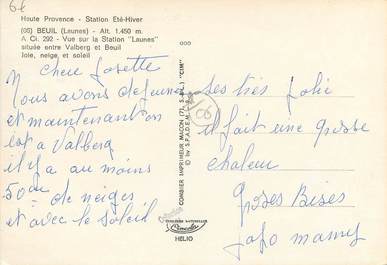 6€
Haute Provence - Station Eté-Hiver
(06) BEUIL (Launes) - Alt. 1.450 m.
A Ci. 292 - Vue sur la Station "Launes"
située entre Valberg et Beuil
Joie, neige et soleil
Chere Josette
Nous avons dejeuné
et maintenant on
est a Valberg
il y a au moins
50 de neiges
et avec le soleil
COMBIER IMPRIMEUR MACON (71, S.-&-L.) "CIM"
© by S.P.A.D.E.M.
COULEURS NATURELLES
Combier
HELIO
ses très Jolie
il fait une grosse
chaleur
Groses Bises
Japo mamy